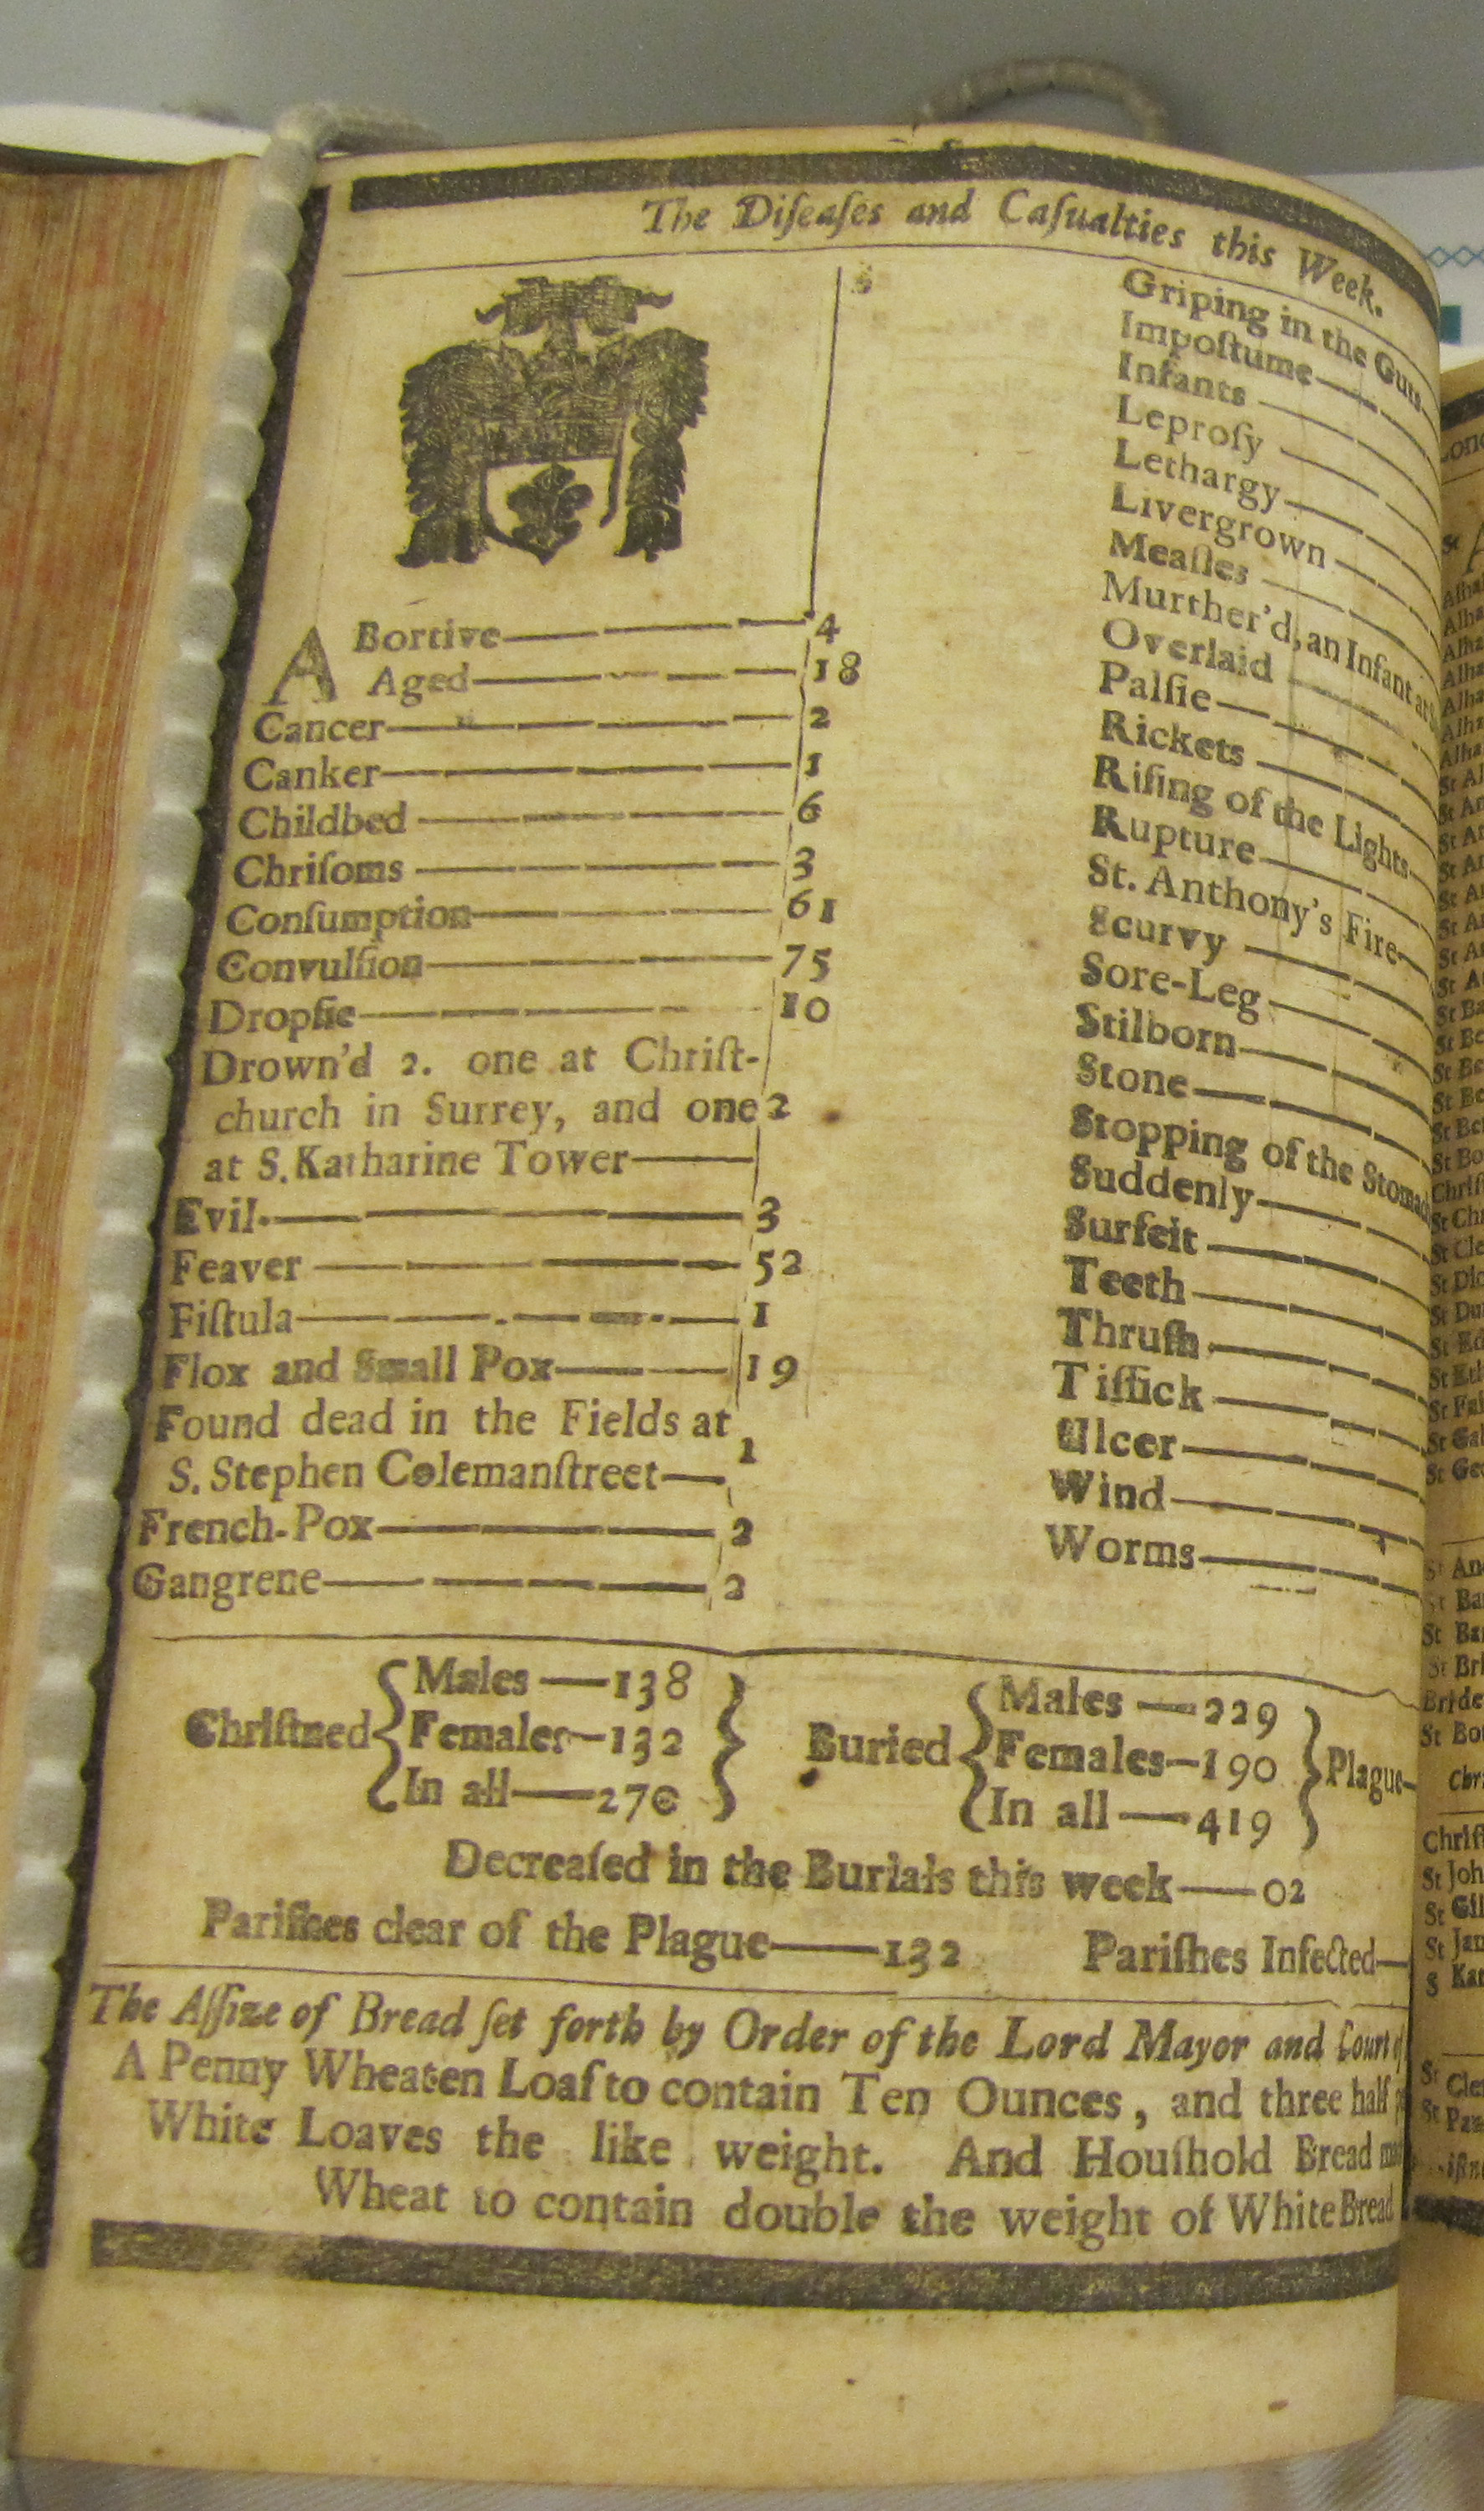 The Diſeaſes and Caſualties this Week.
ABortive 4
Aged 18
Cancer 2
Canker 1
Childbed 6
Chriſoms 3
Conſumption 61
Convulſion 75
Dropſie 10
Drown'd 2. one at Chriſt-
church in Surrey, and one 2
at S. Katharine Tower
Evil 3
Feaver 52
Fiſtula 1
Flox and Small Pox 19
Found dead in the Fields at
S. Stephen Colemanſtreet 1
French-Pox 2
Gangrene 2
Griping in the Guts
Impoſtume
Infants
Leproſy
Lethargy
Livergrown
Meaſles
Murther'd, an Infant at
Overlaid
Palſie
Rickets
Riſing of the Lights
Rupture
St. Anthony's Fire
Scurvy
Sore-Leg
Stilborn
Stone
Stopping of the Stomach
Suddenly
Surfeit
Teeth
Thruſh
Tiſſick
Ulcer
Wind
Worms
Chriſtned { Males—138
Females—132
In all—270 }
Buried { Males—229
Females—190
In all—419 } Plague—
Decreaſed in the Burials this week—02
Pariſhes clear of the Plague—132 Pariſhes Infected—
The Aſſize of Bread ſet forth by Order of the Lord Mayor and Court of
A Penny Wheaten Loaf to contain Ten Ounces, and three half
White Loaves the like weight. And Houſhold Bread
Wheat to contain double the weight of White Bread